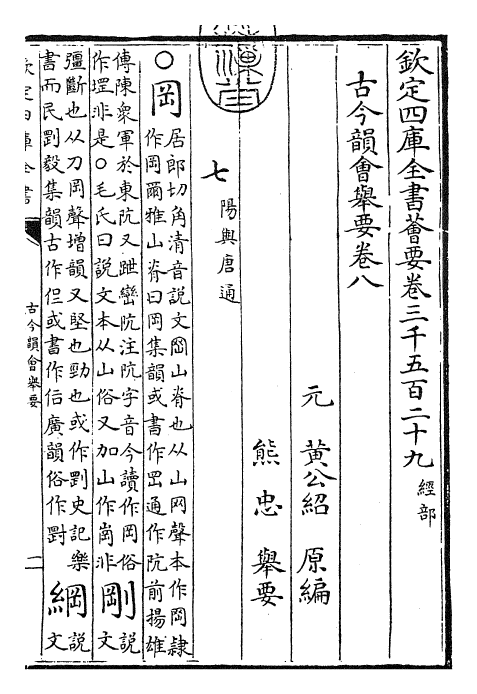 欽定四庫全書薈要卷三千五百二十九 經部
古今韻會舉要卷八
元 黃公紹 原編
熊忠 舉要
七 陽與唐通
○岡
居郎切角清音說文岡山脊也从山网聲本作岡隷
作岡爾雅山脊曰岡集韻或書作罡通作阬前揚雄
傳陳衆軍於東阬又跇巒阬注阬字音今讀作岡俗
作罡非是○毛氏曰說文本从山俗又加山作崗非
剛 說文
彊斷也从刀岡聲增韻又堅也勁也或作㓻史記樂
書而民㓻毅集韻古作或書作廣韻俗作
綱 說文
欽定四庫全書
古今韻會舉要
二